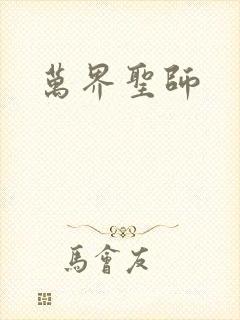 萬界聖師
馬會友